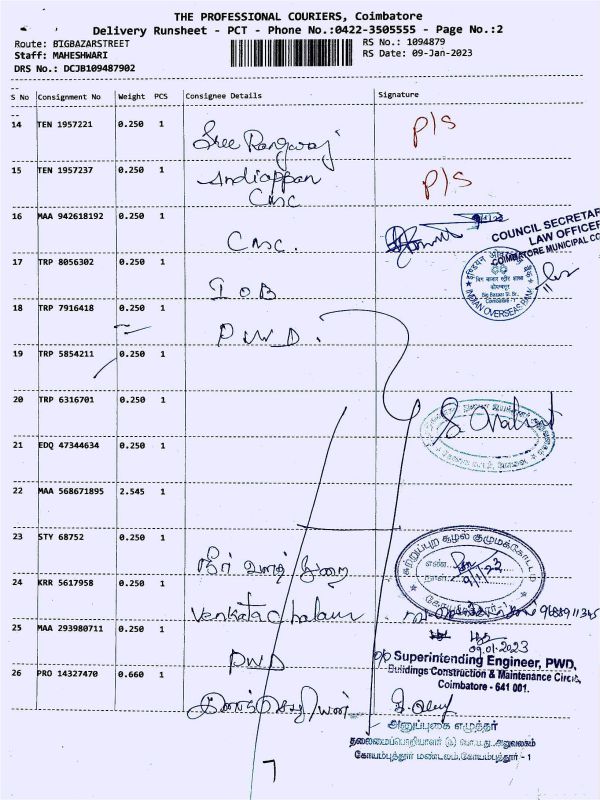 THE PROFESSIONAL COURIERS, Coimbatore
Delivery Runsheet - PCT - Phone No.:0422-3505555 - Page No.:2
Route: BIGBAZARSTREET
Staff: MAHESHWARI
DRS No.: DCJB109487902
RS No.: 1094879
RS Date: 09-Jan-2023
S No Consignment No Weight PCS Consignee Details Signature
14 TEN 1957221 0.250 1 Sree Rangaraj P/S
15 TEN 1957237 0.250 1 Andiappan P/S
CMC
16 MAA 942618192 0.250 1 CMC.
COUNCIL SECRETAR
LAW OFFICER
COIMBATORE MUNICIPAL CO
17 TRP 8056302 0.250 1 IOB
INDIAN OVERSEAS BANK
18 TRP 7916418 0.250 1 PWD.
19 TRP 5854211 0.250 1
20 TRP 6316701 0.250 1
21 EDQ 47344634 0.250 1
22 MAA 568671895 2.545 1
23 STY 68752 0.250 1
சுற்றுப்புற சூழல் குழுமக்கோட்டம்
24 KRR 5617958 0.250 1 Venkatachalam
25 MAA 293980711 0.250 1 PWD
09.01.2023
Superintending Engineer, PWD,
Buildings Construction & Maintenance Circle,
Coimbatore - 641 001.
26 PRO 14327470 0.660 1
அனுப்புகை எழுத்தர்
தலைமைப்பொறியாளர் (க) பொ.ப.து.,அலுவலகம்
கோயம்புத்தூர் மண்டலம்,கோயம்புத்தூர் - 1
7